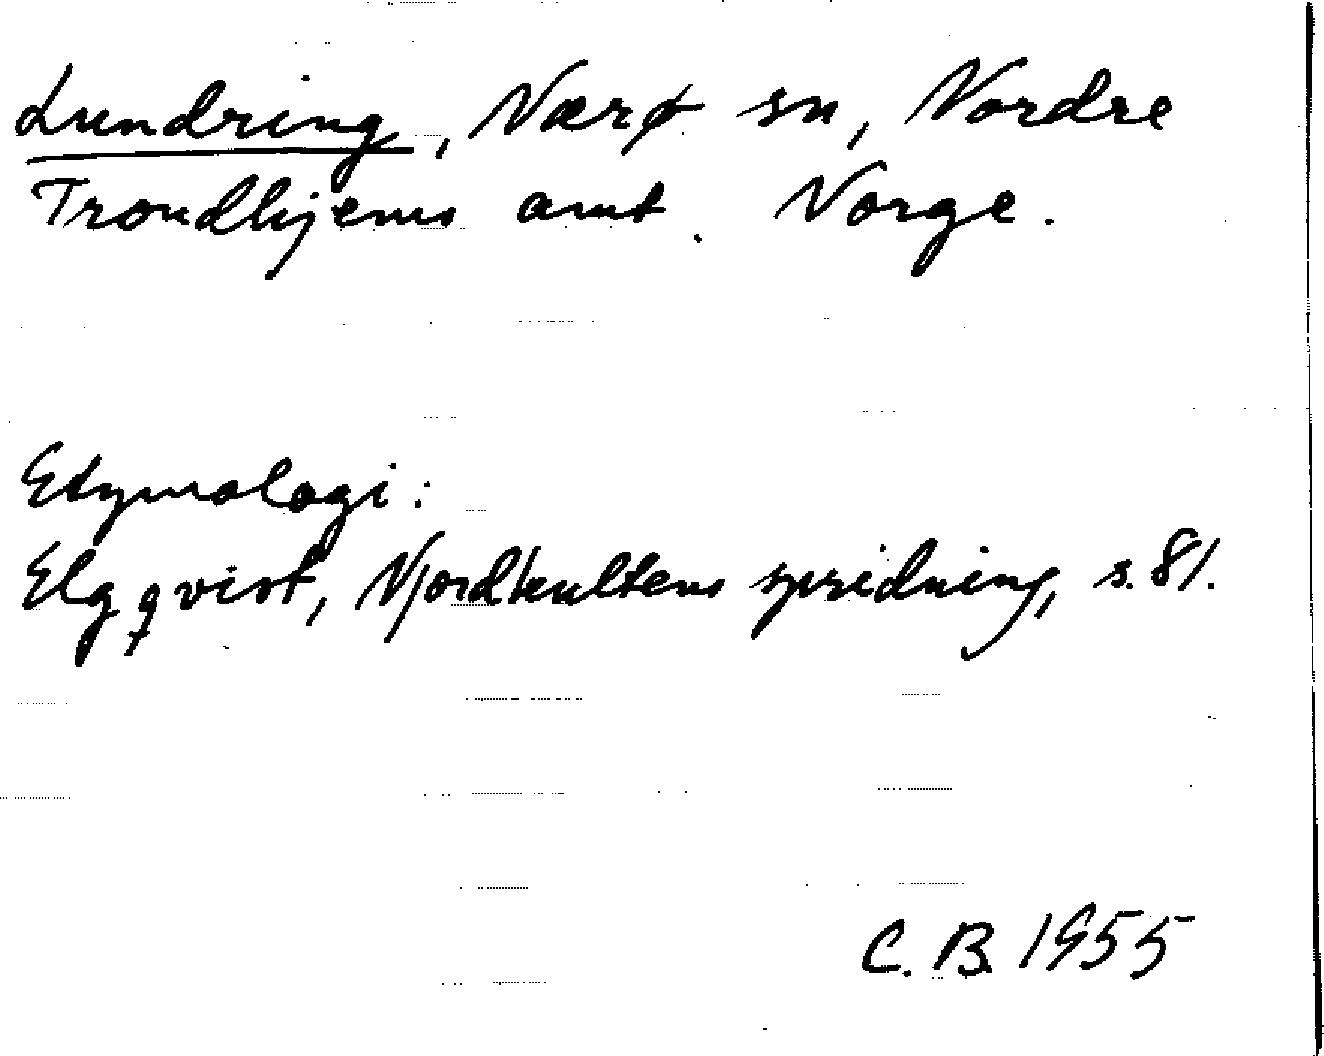 Lundring, Nærø sn, Nordre
Trondhjems amt. Norge.
Etymologi:
Elgqvist, Njordkultens spridning, s. 81.
C. B. 1955